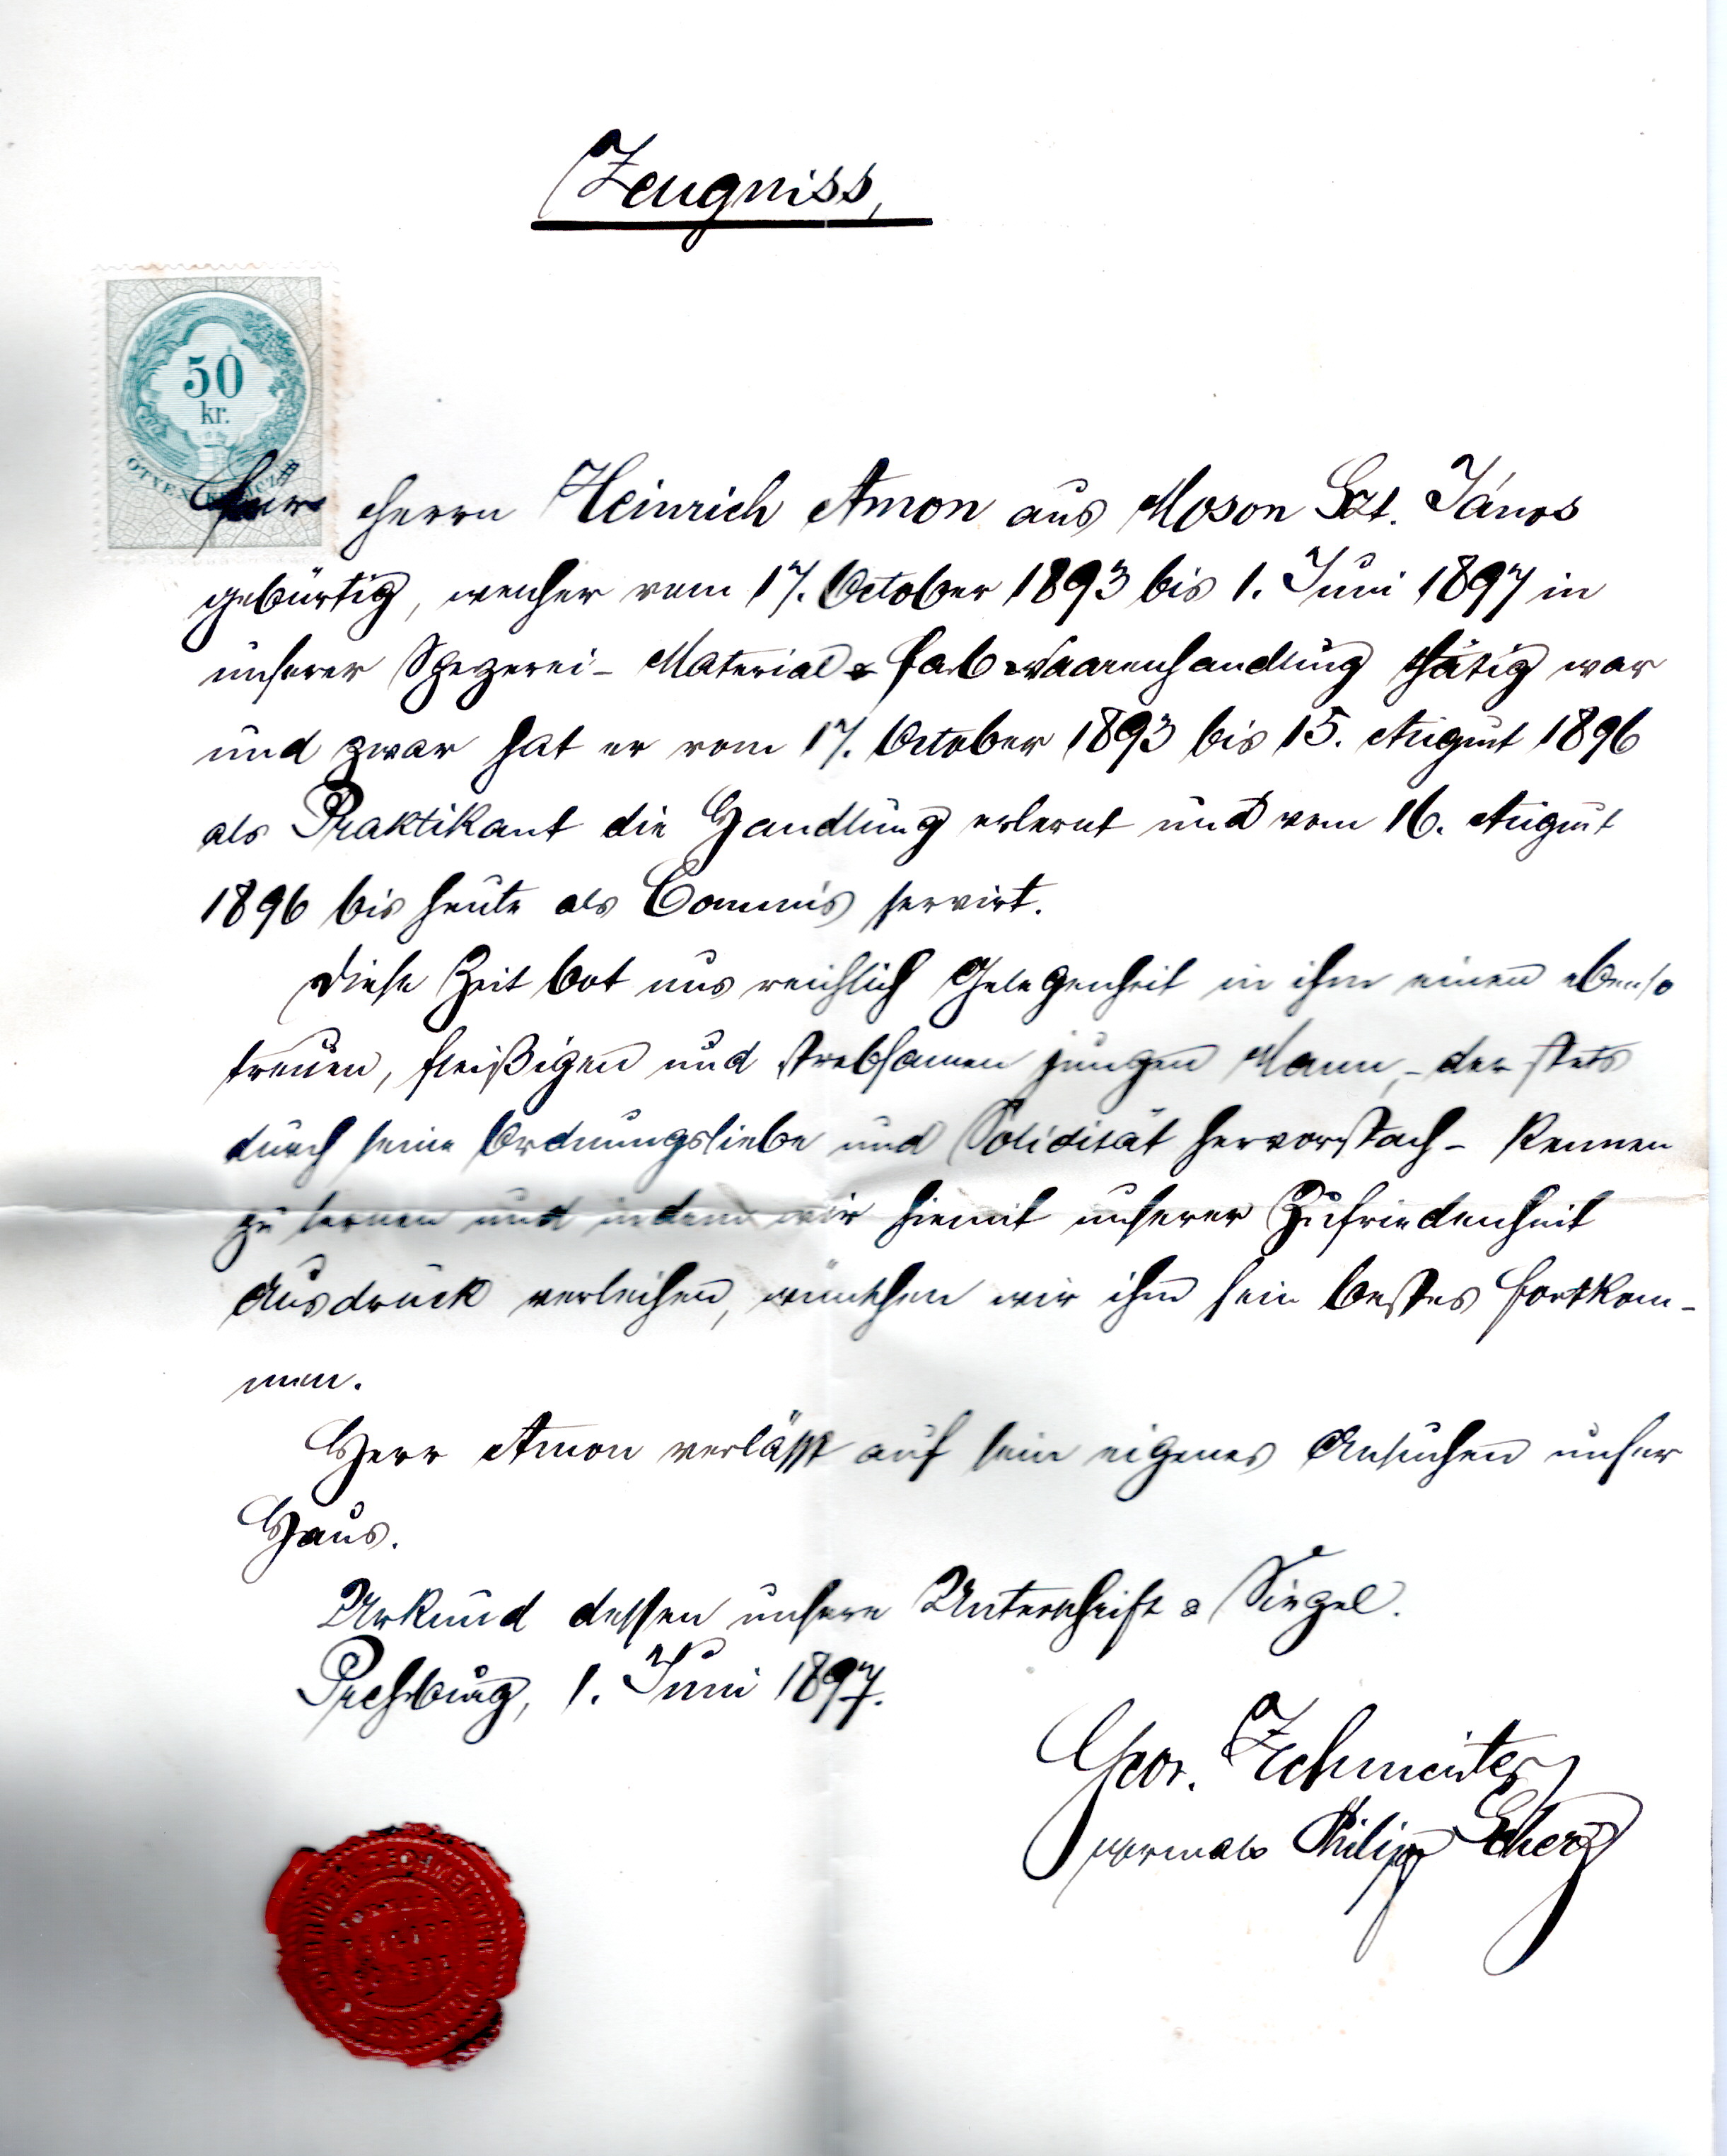 Zeugniss,
50
kr.
ÖTVEN KRAJCZÁR
Für Herrn Heinrich Amon aus Moson Szt. János
gebürtig, welcher vom 17. October 1893 bis 1. Juni 1897 in
unserer Spezerei- Material & Farbwaarenhandlung thätig war
und zwar hat er vom 17. October 1893 bis 15. August 1896
als Praktikant die Handlung erlernt und vom 16. August
1896 bis heute als Commis servirt.
Diese Zeit bot uns reichlich Gelegenheit in ihm einen ebenso
treuen, fleißigen und strebsamen jungen Mann, - der stets
durch seine Ordnungsliebe und Solidität hervorstach - kennen
zu lernen und indem wir hiemit unserer Zufriedenheit
Ausdruck verleihen, wünschen wir ihm sein bestes Fortkom-
men.
Herr Amon verlässt auf sein eigenes Ansuchen unser
Haus.
Urkund dessen unsere Unterschrift & Siegel.
Preßburg, 1. Juni 1897.
Geor. Zechmeister
vormals Philipp Scherz